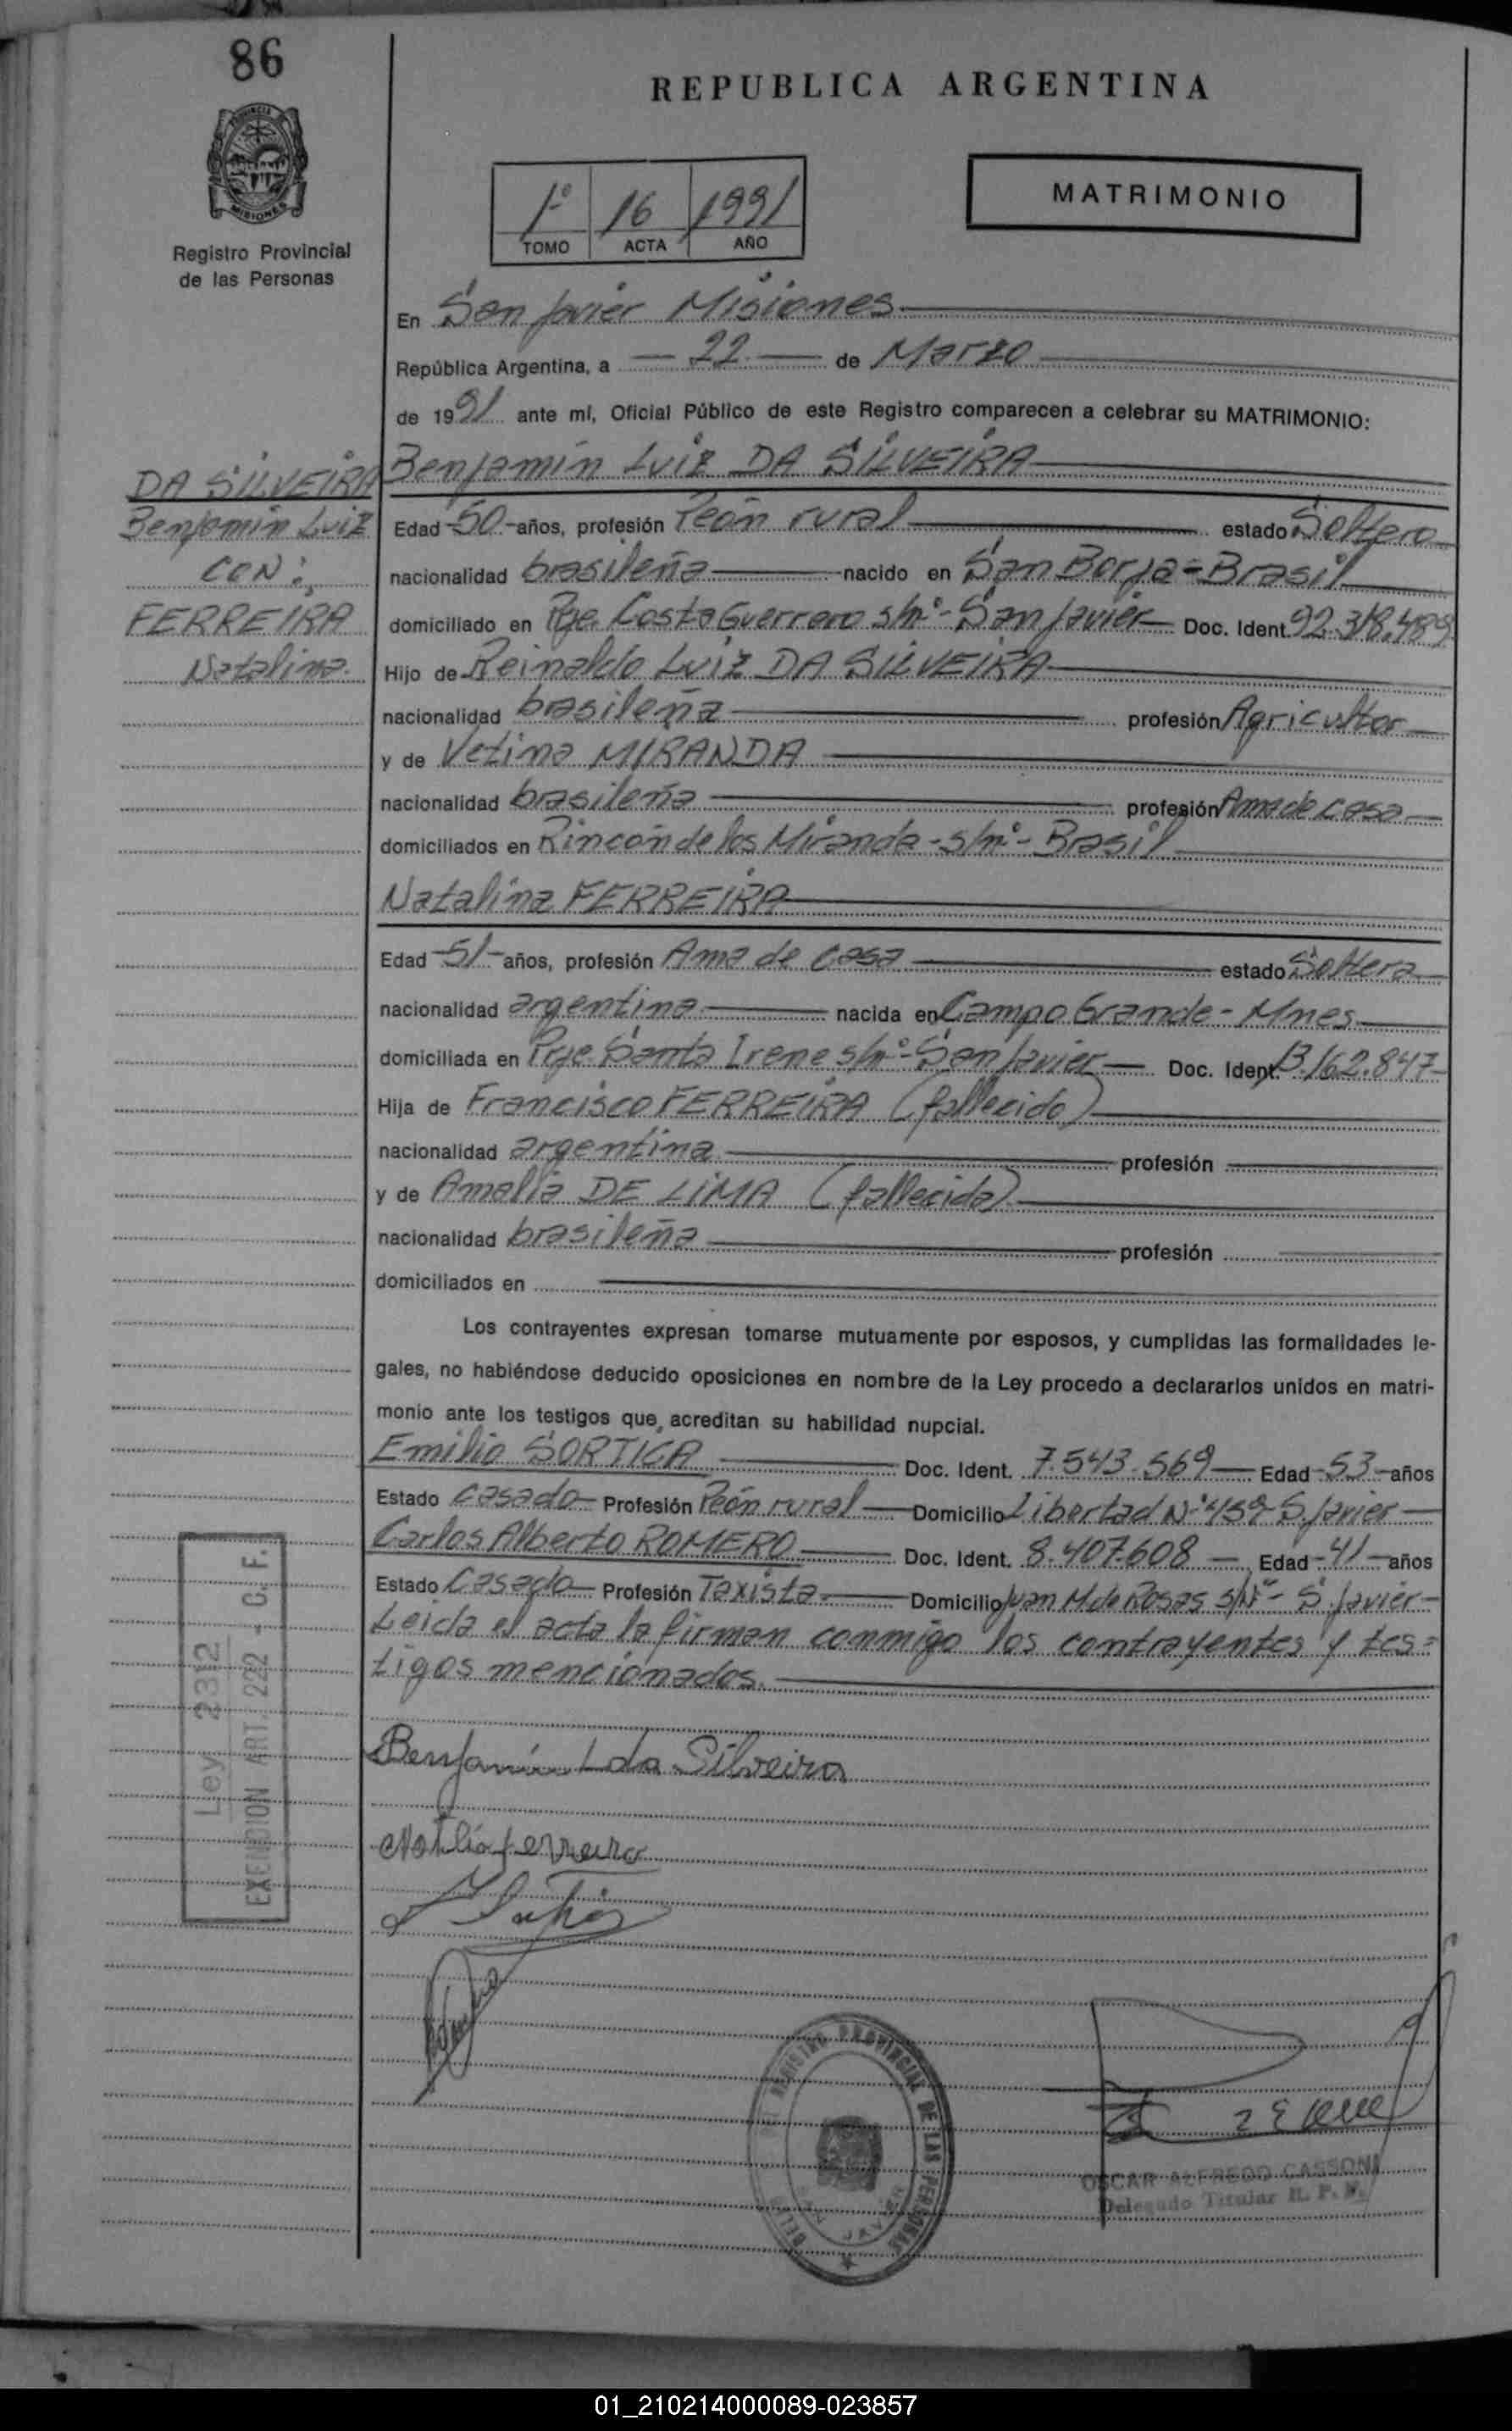 86
REPUBLICA ARGENTINA
PROVINCIA DE MISIONES
Registro Provincial
de las Personas
1º 16 1991
TOMO ACTA AÑO
MATRIMONIO
En San Javier Misiones
República Argentina, a 22 de Marzo
de 1991 ante mí, Oficial Público de este Registro comparecen a celebrar su MATRIMONIO:
DA SILVEIRA
Benjamín Luiz
CON:
FERREIRA
Natalina.
Benjamín Luiz DA SILVEIRA
Edad -50- años, profesión Peón rural estado Soltero
nacionalidad brasileña nacido en San Borja = Brasil
domiciliado en Pje. Costa Guerrero s/nº - San Javier Doc. Ident. 92.318.489
Hijo de Reinaldo Luiz DA SILVEIRA
nacionalidad brasileña profesión Agricultor
y de Vetima MIRANDA
nacionalidad brasileña profesión Ama de casa
domiciliados en Rincón de los Miranda - s/nº - Brasil
Natalina FERREIRA
Edad -51- años, profesión Ama de casa estado Soltera
nacionalidad argentina nacida en Campo Grande - Mnes.
domiciliada en Pje. Santa Irene s/nº - San Javier Doc. Ident. 13.162.847
Hija de Francisco FERREIRA (fallecido)
nacionalidad argentina profesión
y de Amalia DE LIMA (fallecida)
nacionalidad brasileña profesión
domiciliados en
Los contrayentes expresan tomarse mutuamente por esposos, y cumplidas las formalidades le-
gales, no habiéndose deducido oposiciones en nombre de la Ley procedo a declararlos unidos en matri-
monio ante los testigos que acreditan su habilidad nupcial.
Emilio SORTICA Doc. Ident. 7.543.569 Edad -53- años
Estado Casado Profesión Peón rural Domicilio Libertad Nº 459 S. Javier
Carlos Alberto ROMERO Doc. Ident. 8.407.608 Edad -41- años
Estado Casado Profesión Taxista Domicilio Juan M. de Rosas s/Nº - S. Javier
Leida el acta la firman conmigo los contrayentes y tes=
tigos mencionados.
Ley 2312
EXENCION ART. 222 - C. F.
Benjamín L da Silveira
Ferreira
REGISTRO PROVINCIAL DE LAS PERSONAS
OSCAR ALFREDO CASSONI
Delegado Titular R. P. P.
01_210214000089-023857